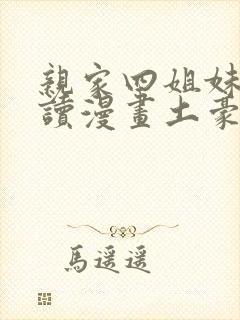 親家四姐妹
讀漫畫土豪
馬遥遥